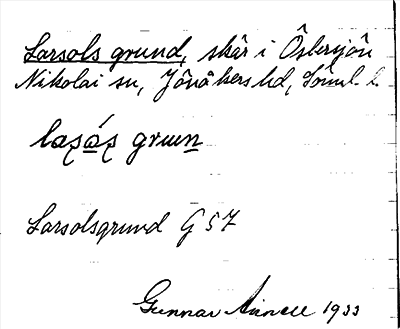 Larsols grund, skär i Östersjön
Nikolai sn, Jönåkers hd, Söml. l.
laʂǻʂ gruen
Larsolsgrund G 57
Gunnar 1933